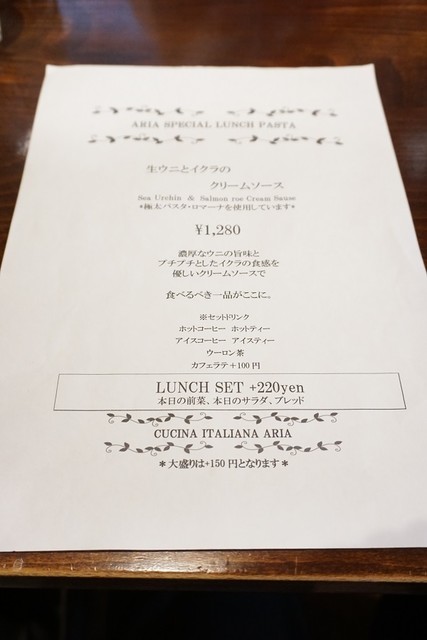 ARIA SPECIAL LUNCH PASTA
生ウニとイクラの
クリームソース
Sea Urchin & Salmon roe Cream Sause
*極太パスタ・ロマーナを使用しています*
¥1,280
濃厚なウニの旨味と
プチプチとしたイクラの食感を
優しいクリームソースで
食べるべき一品がここに。
※セットドリンク
ホットコーヒー ホットティー
アイスコーヒー アイスティー
ウーロン茶
カフェラテ+100円
LUNCH SET +220yen
本日の前菜、本日のサラダ、ブレッド
CUCINA ITALIANA ARIA
*大盛りは+150円となります*